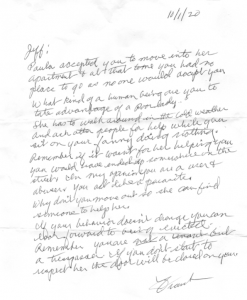 11/1/20
Jeff:
Paula accepted you to move into her
apartment & at that time you had no
place to go as no one would accept you
What kind of a human being are you to
take advantage of a poor lady.
She has to walk around in the cold weather
and ask other people for help while you
sit on your fanny doing nothing.
Remember if it wasn't for her helping you
you would have ended up somewhere in the
street. In my opinion you are a user &
abuser
Why don't you move out so she can find
someone to help her.
If your behavior doesn't change you can
look forward to being evicted.
Remember you are not a tenant but
a If you don't start to
respect her the door will be closed on you